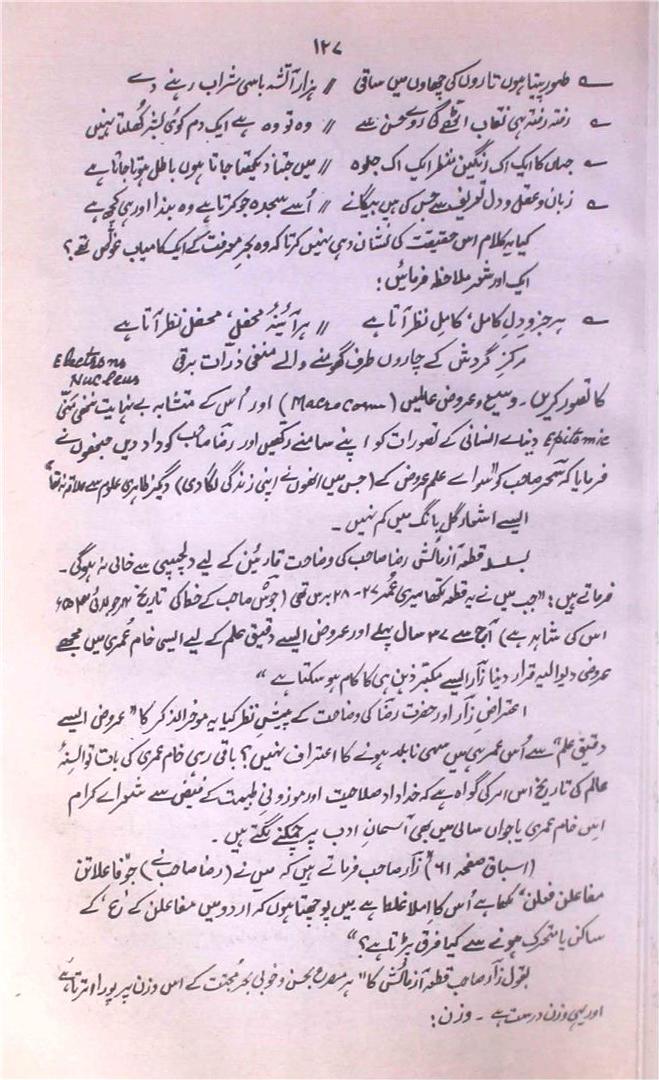 ۱۲۷
طہور پیتا ہوں تاروں کی چھاوں میں ساقی // ہزار آتشہ باسی شراب رہنے دے
رفتہ رفتہ ہی نقاب اٹھے گا روے حسن سے // وہ تو وہ ہے ایک دم کوئی بشر کھلتا نہیں
جہاں کا ایک اک رنگین منظر ایک اک جلوہ // میں جتنا دیکھتا جاتا ہوں باطل ہوتا جاتا ہے
زبان و عقل و دل تعریف سے جس کی ہیں بیگانے // اُسے سجدہ جو کرتا ہے وہ بندا اور ہی کچھ ہے
کیا یہ کلام اس حقیقت کی نشان دہی نہیں کرتا کہ وہ بحرِ معرفت کے ایک کامیاب غوّاص تھے؟
ایک اور شعر ملاحظہ فرمائیں:
ہر جزوِ دلِ کامل، کامل نظر آتا ہے // ہر آئینۂ محفل، محفل نظر آتا ہے
مرکزِ گردش کے چاروں طرف گھومنے والے منفی ذرّات برقی Electrons Nucleus
کا تصور کریں۔ وسیع و عریض عالمیں (Macrocosm) اور اُس کے متشابہ بے نہایت ننھی منّی
Epitomic دنیاے انسانی کے تصورات کو اپنے سامنے رکھیں اور رضا صاحب کو داد دیں جنھوں نے
فرمایا کہ سحر صاحب کو "سواے علمِ عروض کے (جس میں انھوں نے اپنی زندگی لگا دی) دیگر ظاہری علوم سے علاقہ نہ تھا"
ایسے اشعار گل بانگ میں کم نہیں۔
بسلسلہ قطعہ آزمائشی رضا صاحب کی وضاحت قارئین کے لیے دلچسپی سے خالی نہ ہوگی۔
فرماتے ہیں: "جب میں نے یہ قطعہ لکھا میری عُمر ۲۷-۲۸ برس تھی (جوش صاحب کے خط کی تاریخ جولائی ۵۳ء
اس کی شاہد ہے) آج سے ۳۷ سال پہلے اور عروض ایسے دقیق علم کے لیے ایسی خام عُمری میں مجھے
عروضی دیوالیہ قرار دینا زار ایسے مکتبر ذہن ہی کا کام ہو سکتا ہے"
اعتراضِ زار اور حضرت رضا کی وضاحت کے پیشِ نظر کیا یہ موخر الذکر کا "عروض ایسے
دقیق علم" سے اُس عمر ہی میں سہی نابلد ہونے کا اعتراف نہیں؟ باقی رہی خام عمری کی بات تو السِنۂ
عالم کی تاریخ اس امر کی گواہ ہے کہ خداداد صلاحیت اور موزونیِ طبیعت کے فیض سے شعراے کرام
اس خام عمری یا جواں سالی میں بھی آسمانِ ادب پر چمکنے لگتے ہیں۔
(اسباق صفحہ ۶۱) زار صاحب فرماتے ہیں کہ میں نے (رضا صاحب نے) جو "فاعلاتن
مفاعلن فعلن" لکھا ہے اُس کا املا غلط ہے میں پوچھتا ہوں کہ اردو میں مفاعلن کے 'ع' کے
ساکن یا متحرک ہونے سے کیا فرق پڑتا ہے؟"
بقول زار صاحب قطعہ آزمائشی کا "ہر مصرع بحسن و خوبی بحرِ مجتث کے اس وزن پر پورا اترتا ہے
اور یہی وزن درست ہے۔ وزن: